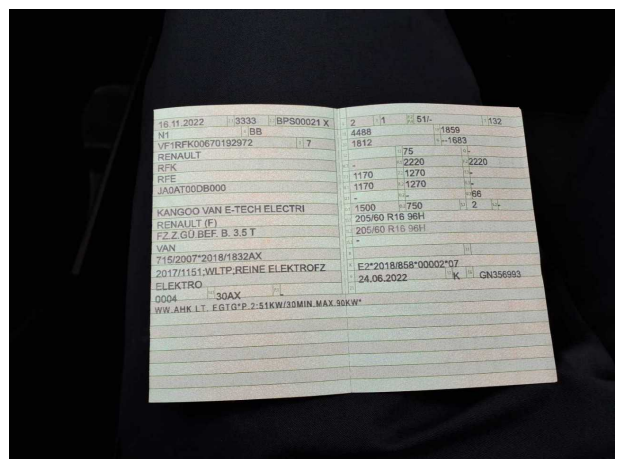 16.11.2022 3333 BPS00021 X
N1 BB
VF1RFK00670192972 7
RENAULT
RFK
RFE
JA0AT00DB000
KANGOO VAN E-TECH ELECTRI
RENAULT (F)
FZ.Z.GÜ.BEF. B. 3.5 T
VAN
715/2007*2018/1832AX
2017/1151;WLTP;REINE ELEKTROFZ
ELEKTRO
0004 30AX
WW.AHK LT. EGTG*P.2:51KW/30MIN.MAX.90KW*
2 1 51/- 132
4488 1859
1812 --1683
75 -
- 2220 2220
1170 1270 -
1170 1270 -
- - 66
1500 750 2 -
205/60 R16 96H
205/60 R16 96H
-
E2*2018/858*00002*07
24.06.2022 K GN356993